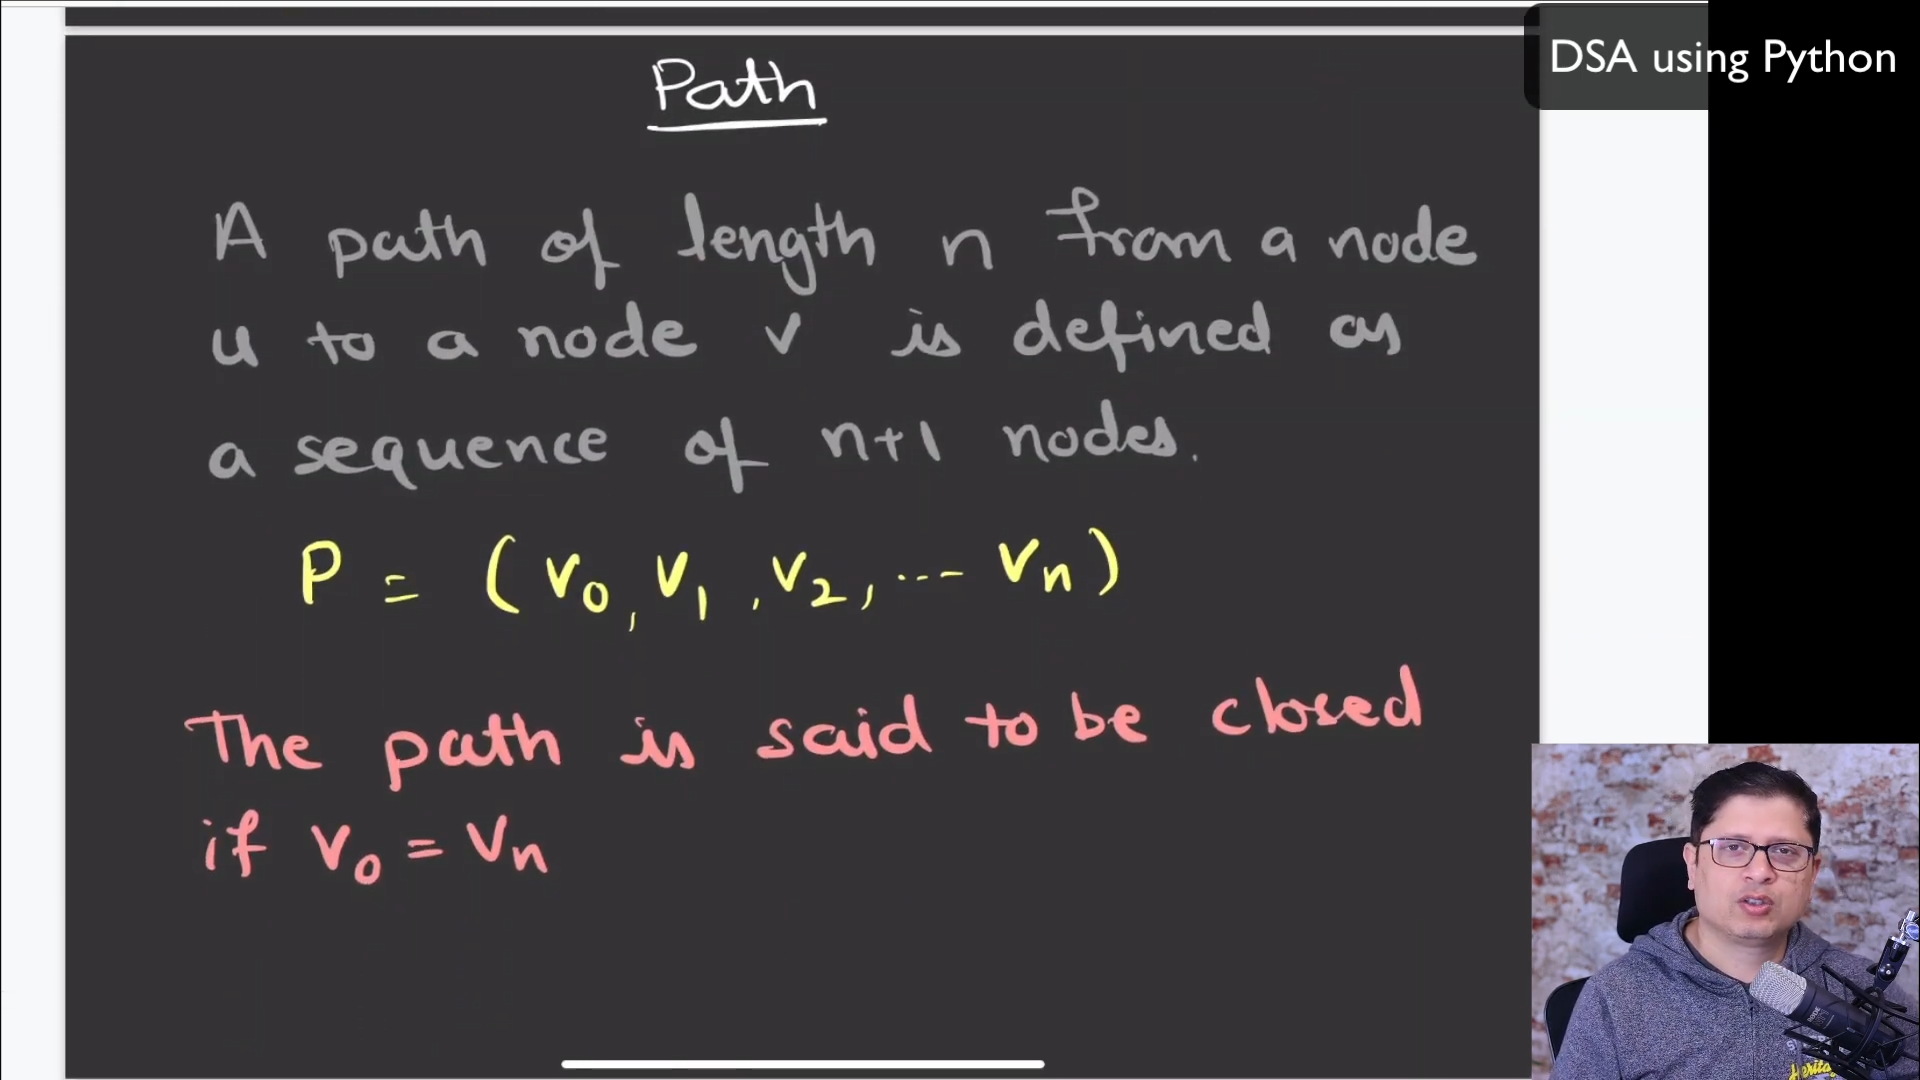 DSA using Python
Path
A path of length n from a node
u to a node v is defined as
a sequence of n+1 nodes.
P = (v₀, v₁, v₂, --- vₙ)
The path is said to be closed
if v₀ = vₙ